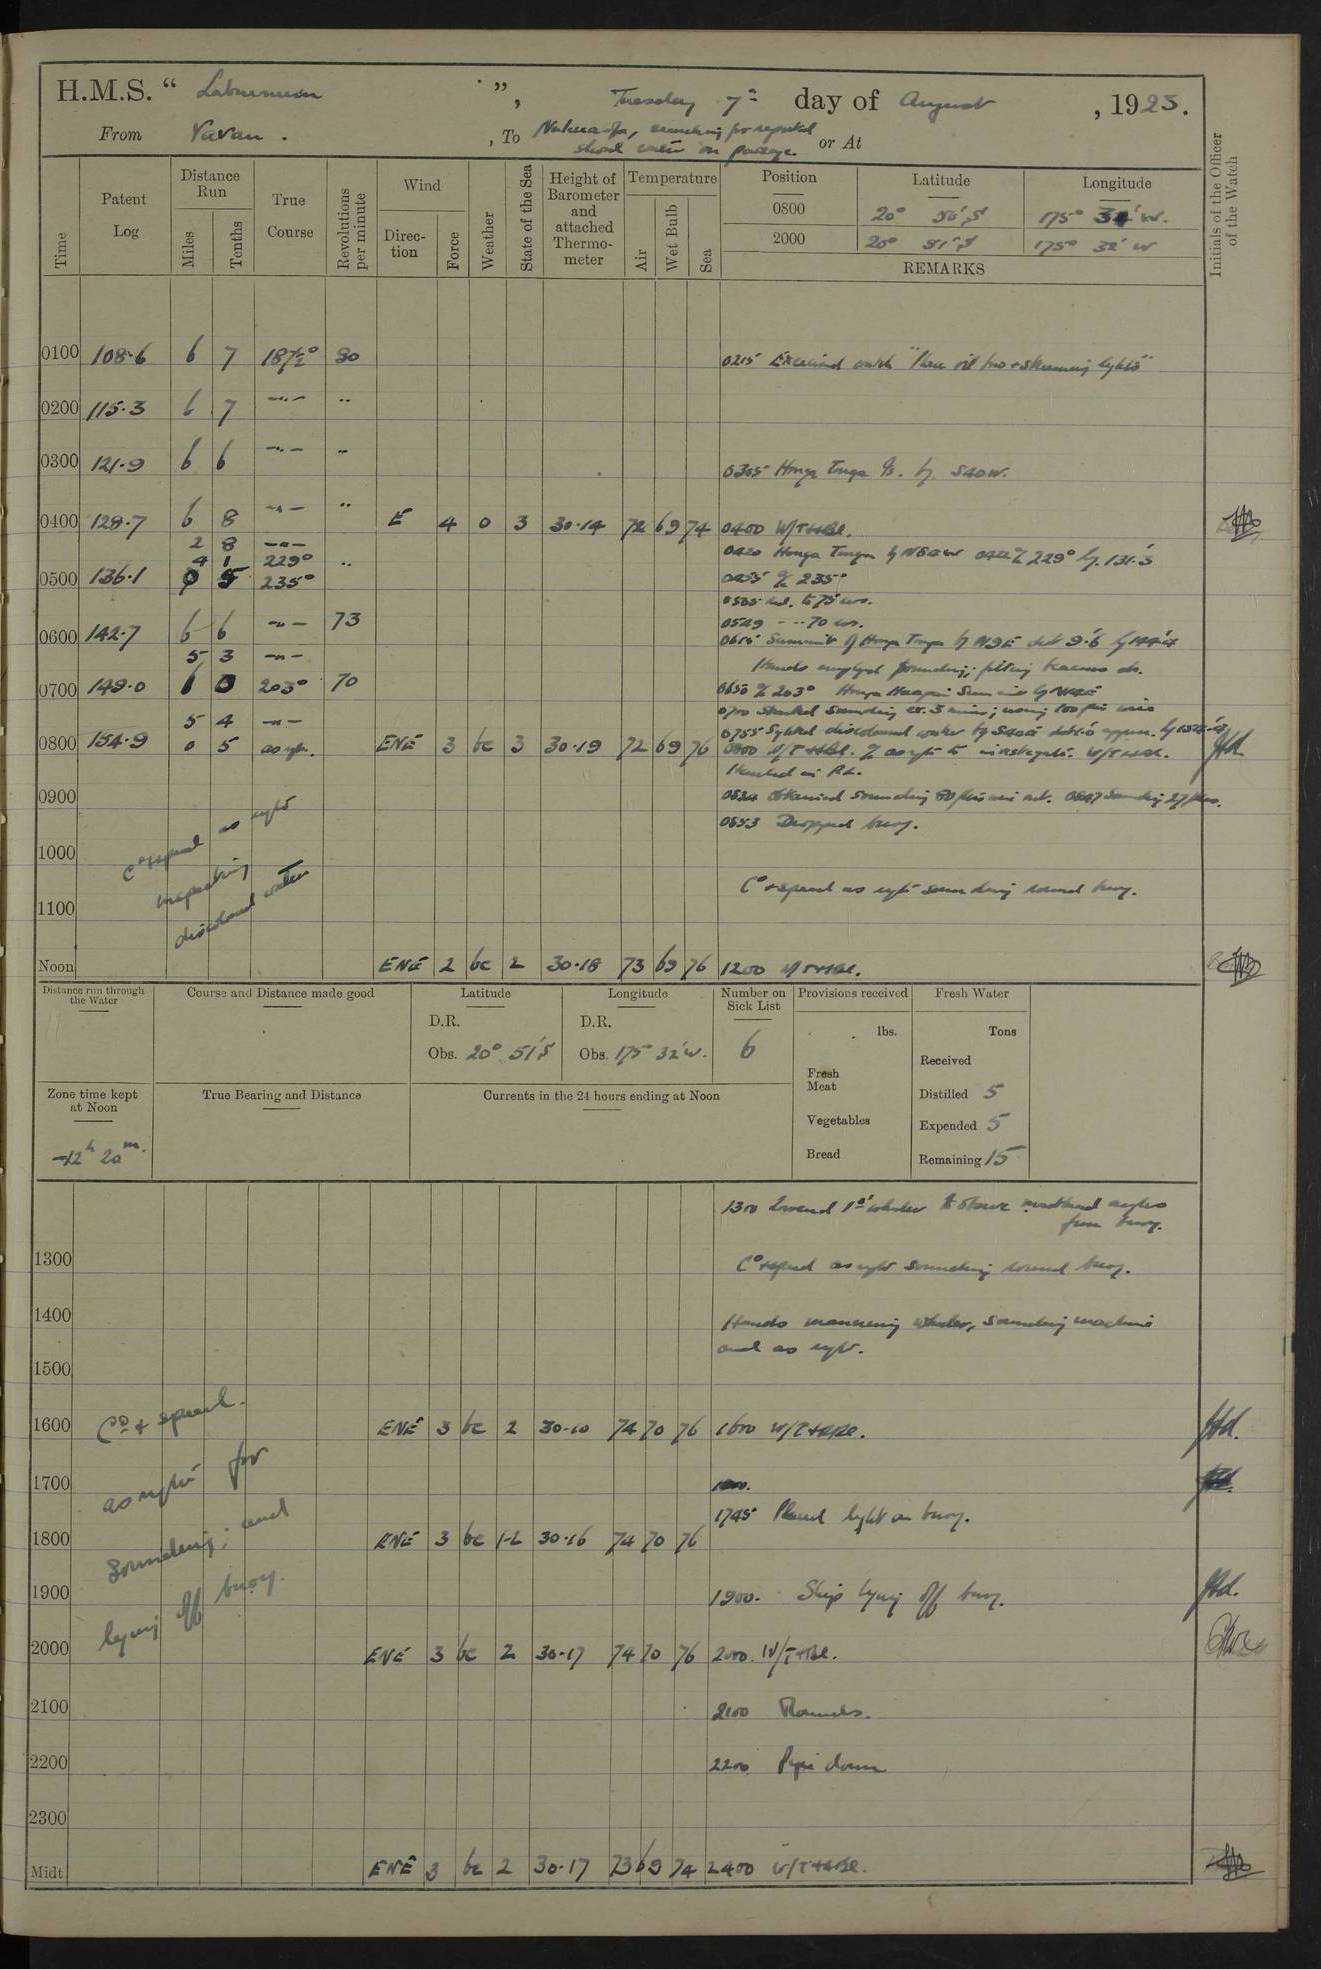 H.M.S. “ Laburnum ”, Tuesday 7th day of August , 1923.
From Vavau . , To Nukualofa, searching for reported
shoal water on passage. or At
Time
Patent Log
Distance Run
Miles
Tenths
True Course
Revolutions per minute
Wind
Direction
Force
Weather
State of the Sea
Height of Barometer and attached Thermometer
Temperature
Air
Wet Bulb
Sea
Position Latitude Longitude
0800 20° 50'S 175° W.
2000 20° 51'S 175° 32' W
REMARKS
Initials of the Officer of the Watch
0100 108.6 6 7 187½° 80
0215 Exercised watch
0200 115.3 6 7 —"— "
0300 121.9 6 6 —"— "
0305 Honga Tonga by S40W.
0400 128.7 6 8 —"— " E 4 0 3 30.14 72 69 74 0400 W/T+HBl.
2 8 —"—
0420 Honga Tonga by N54W 229° 131.3
4 1 229° "
0500 136.1 0 5 235°
0435 a/c 235°
0505 to 75
0549 -- 70
0600 142.7 6 6 —"— 73
0615 Summit of Honga Tonga by N9E dist 9.6
5 3 —"—
Hands employed sounding;
0700 149.0 1 0 203° 70
0650 a/c 203° Honga Haapai Summit by
0700 Started sounding ev. 5 mins; using 100 fm
5 4 —"—
0755 Sighted discoloured water by S40E
0800 154.9 0 5 as rqte. ENE 3 bc 3 30.19 72 69 76 0800 W/T+HBl. a/c as rqte to investigate. W/T+HBl.
Hauled in P.L.
0900
0834 Obtained sounding 80 fms 0847 Sounding 27 fms.
0853 Dropped buoy.
1000
Co + speed as rqte
inspecting
discoloured water
Co + speed as rqte sounding round buoy.
1100
Noon ENE 2 bc 2 30.18 73 69 76 1200 W/T+HBl.
Distance run through the Water
Course and Distance made good
Latitude
D.R.
Obs. 20° 51'S
Longitude
D.R.
Obs. 175° 32'W.
Number on Sick List
6
Provisions received
lbs.
Fresh Meat
Vegetables
Bread
Fresh Water
Tons
Received
Distilled 5
Expended 5
Remaining 15
Zone time kept at Noon
-12h 20m.
True Bearing and Distance
Currents in the 24 hours ending at Noon
1300 Lowered 1st whaler to observe masthead angles
from buoy.
1300
Co + speed as rqte sounding round buoy.
1400
Hands manning whaler, sounding machine
and as rqte.
1500
Co + speed
as rqte for
Sounding; and
lying off buoy.
1600 ENE 3 bc 2 30.10 74 70 76 1600 W/T+HBl.
1700
1745 Placed light on buoy.
1800 ENE 3 bc 1-2 30.16 74 70 76
1900 1900. Ship lying off buoy.
2000 ENE 3 bc 2 30.17 74 70 76 2000. W/T+HBl.
2100 2100 Rounds.
2200 2200 Pipe down
2300
Midt ENE 3 bc 2 30.17 73 69 74 2400 W/T+HBl.